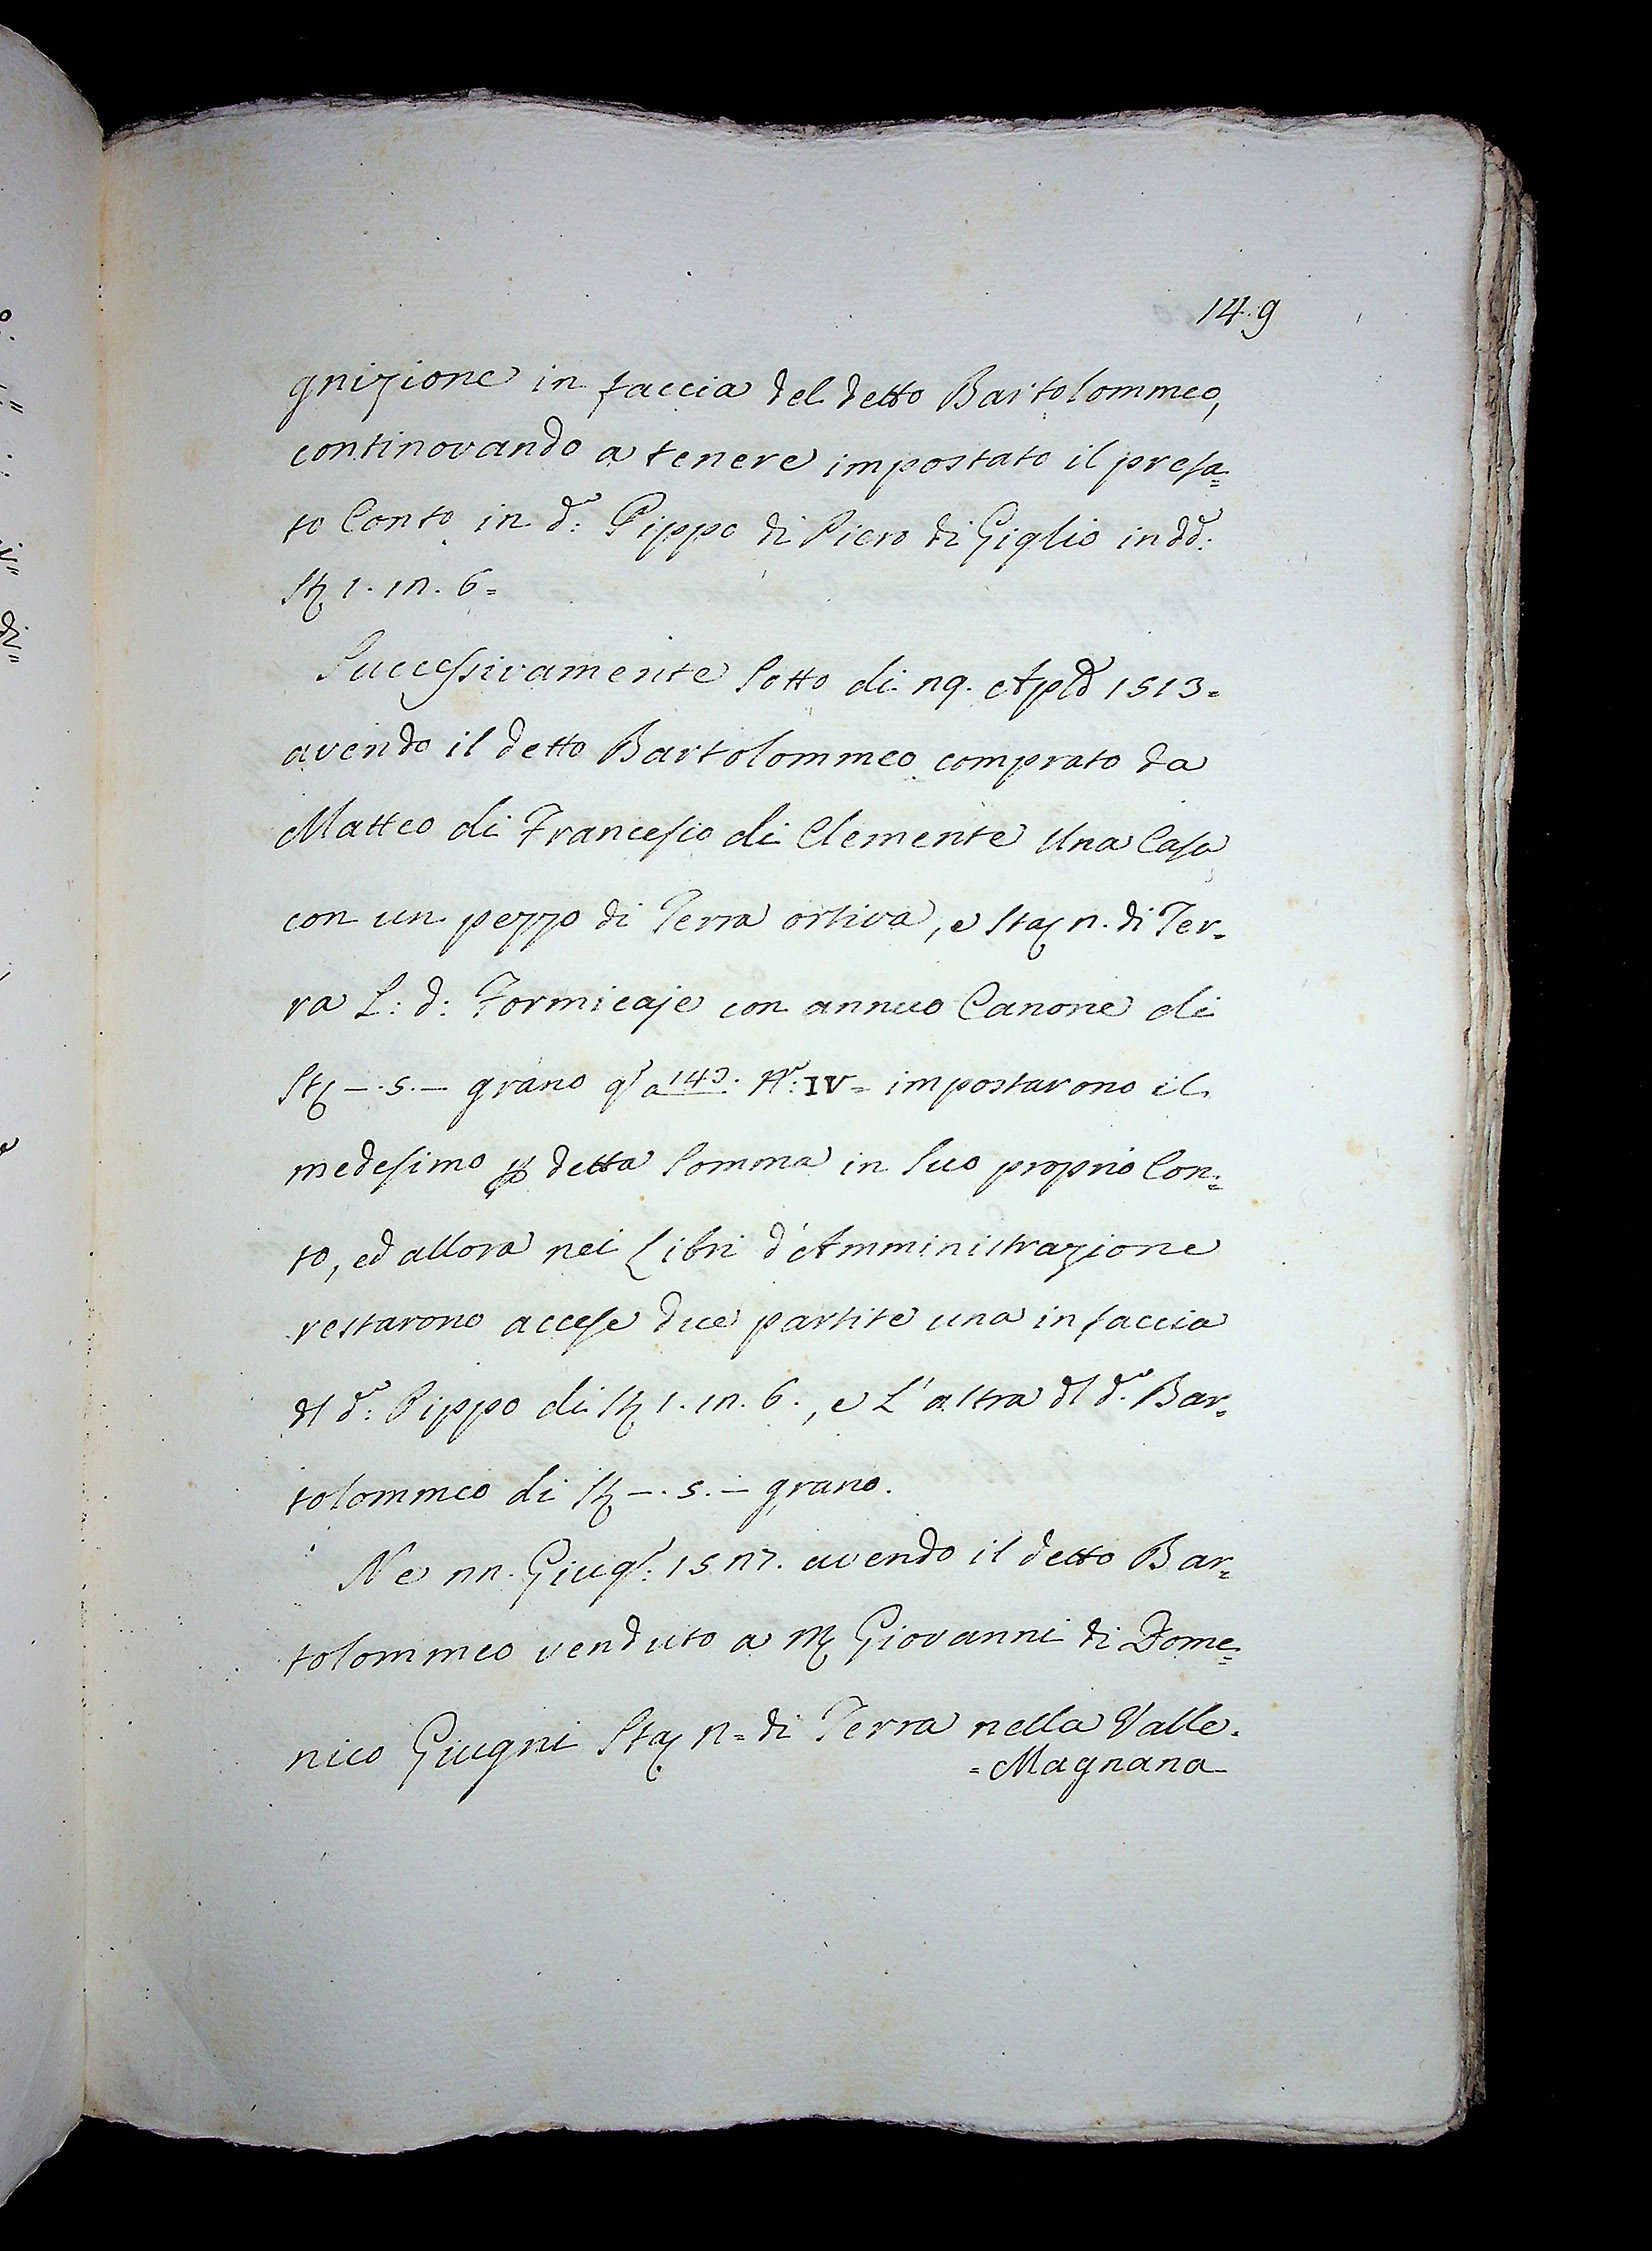 149
gnizione in faccia del detto Bartolommeo,
continovando a tenere impostato il prefa=
to Conto in d.º: Pippo di Piero di Giglio in dd.º:
St. 1. 12. 6=
Successivamente sotto di 29. Aple 1513=
avendo il detto Bartolommeo comprato da
Matteo di Francesco di Clemente una Casa
con un pezzo di Terra ortiva, e Sta. 2. di Ter=
ra L: d: Formicaje con annuo Canone di
St. —. 5. — grano q.º a 143. N.º: IV= impostarono il
medesimo p detta Somma in suo proprio Con=
to, ed allora nei Libri d'Amministrazione
restarono accese due partite una in faccia
dl d.º: Pippo di St. 1. 12. 6., e L'altra dl d.º Bar=
tolommeo di St. —. 5. — grano.
Ne 22. Giug.º: 1527. avendo il detto Bar=
tolommeo venduto a M. Giovanni di Dome=
nico Giugni Sta. 2= di Terra nella Valle=
=Magnana